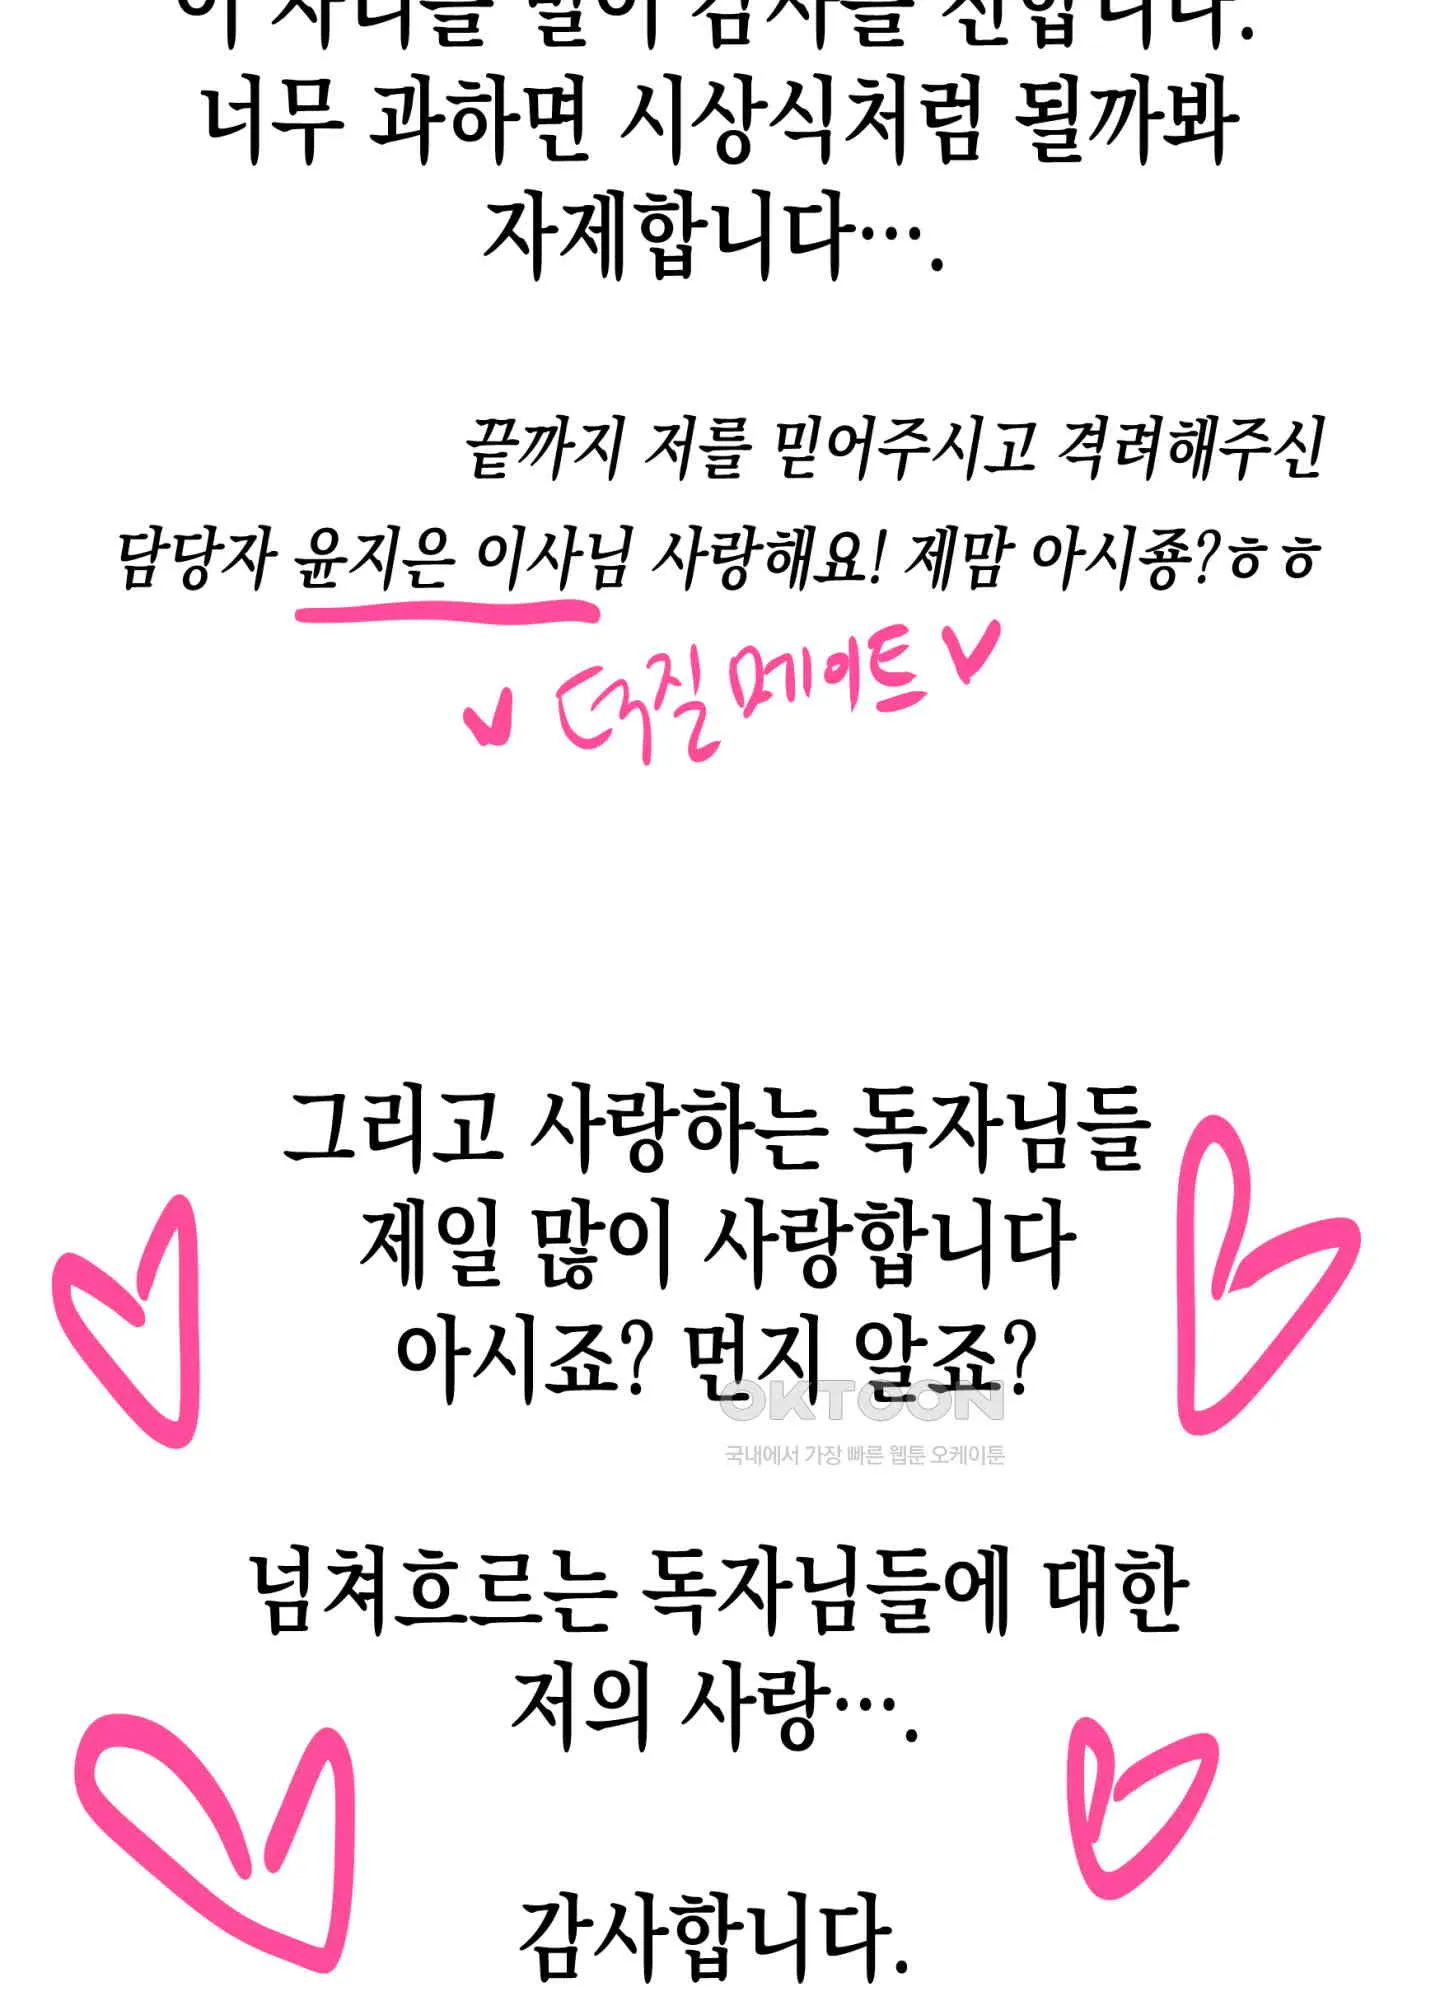 이 자리를 빌어 감사를 전합니다.
너무 과하면 시상식처럼 될까봐
자제합니다….
끝까지 저를 믿어주시고 격려해주신
담당자 윤지은 이사님 사랑해요! 제맘 아시죵?ㅎㅎ
덕질메이트
그리고 사랑하는 독자님들
제일 많이 사랑합니다
아시죠? 먼지 알죠?
OKTOON
국내에서 가장 빠른 웹툰 오케이툰
넘쳐흐르는 독자님들에 대한
저의 사랑….
감사합니다.